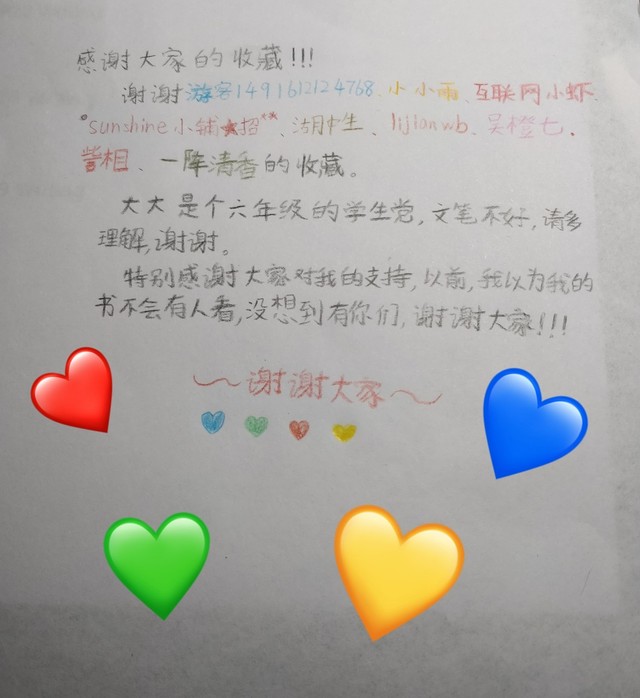 感谢大家的收藏!!!
谢谢游客1491612124768、小小雨、互联网小虾、
*sunshine小铺★招**、湖中生、lijlanwb、吴橙七、
訾相、一阵清香的收藏。
大大是个六年级的学生党,文笔不好,请多
理解,谢谢。
特别感谢大家对我的支持,以前,我以为我的
书不会有人看,没想到有你们,谢谢大家!!!
～谢谢大家～